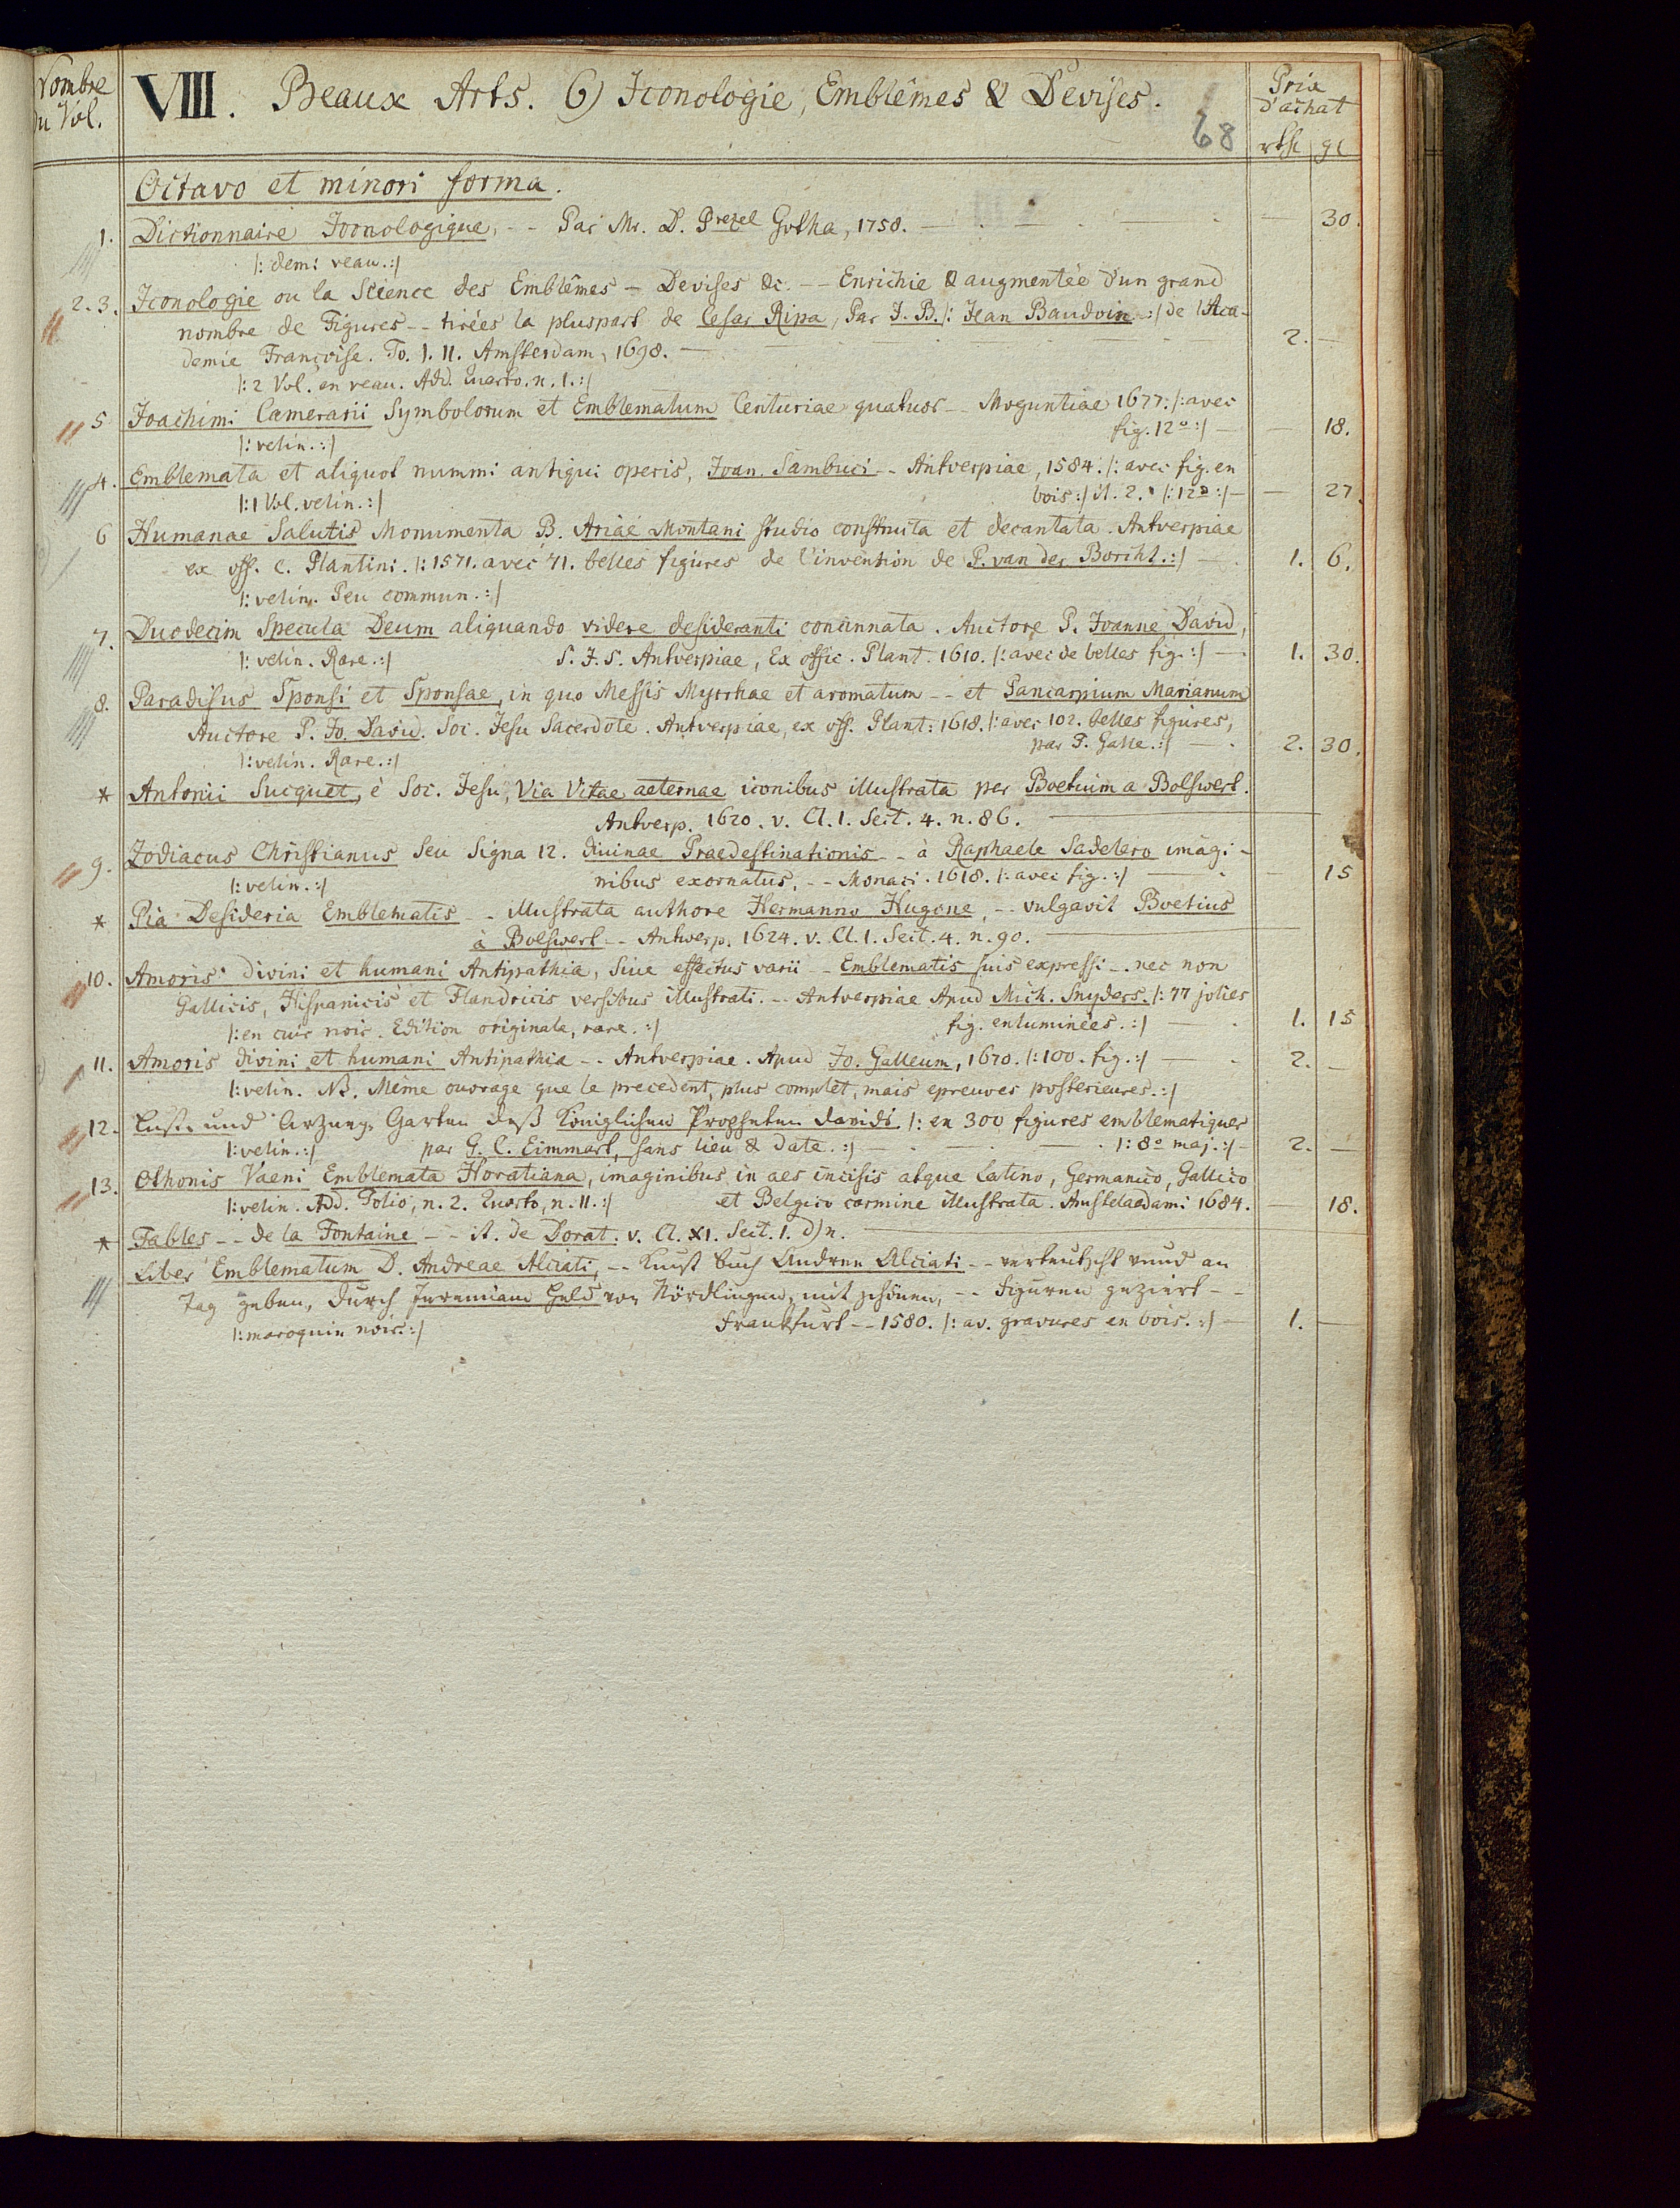 Nombre
du Vol.
VIII. Beaux Arts. 6) Iconologie, Emblêmes & Devises.
68
Prix
d'achat
rthl gl
Octavo et minori forma.
1. Dictionnaire Iconologique, -- Par Mr. D. Prezel Gotha, 1758. — 30.
/: demi veau.:/
2. 3. Iconologie ou la Science des Emblêmes - Devises &c. -- Enrichie & augmentée d'un grand
nombre de Figures -- tirées la pluspart de Cesar Ripa, Par J. B. /: Jean Baudoin :/ de l'Aca-
demie Françoise. To. I. II. Amsterdam, 1698. — 2. —
/: 2 Vol. en veau. Add. Quarto. n. 1. :/
5 Joachimi Camerarii Symbolorum et Emblematum Centuriae quatuor -- Moguntiae 1677. /: avec
/: velin. :/ fig. 12o :/ — 18.
4. Emblemata et aliquot nummi antiqui operis, Ioan. Sambuci -- Antverpiae, 1584. /: avec fig. en
/: 1 Vol. velin. :/ bois :/ it. 2. /: 12o :/ — 27.
6 Humanae Salutis Monumenta B. Ariae Montani studio constructa et decantata. Antverpiae
ex off. C. Plantini. /: 1571. avec 71. belles figures de l'invention de P. van der Borcht. :/ — 1. 6.
/: velin. Peu commun. :/
7. Duodecim Specula Deum aliquando videre desideranti concinnata. Auctore P. Ioanne David,
/: velin. Rare. :/ S. J. S. Antverpiae, Ex offic. Plant. 1610. /: avec de belles fig. :/ — 1. 30.
8. Paradisus Sponsi et Sponsae, in quo Messis Myrrhae et aromatum -- et Pancarpium Marianum
Auctore P. Jo. David. Soc. Jesu Sacerdote. Antverpiae, ex off. Plant: 1618. /: avec 102. belles figures,
/: velin. Rare. :/ par P. Galle. :/ — 2. 30.
* Antonii Sucquet, è Soc. Jesu, Via Vitae aeternae iconibus illustrata per Boetium a Bolswert.
Antverp. 1620. v. Cl. 1. Sect. 4. n. 86. —
9. Zodiacus Christianus seu Signa 12. divinae Praedestinationis -- à Raphaele Sadelero imagi-
/: velin. :/ nibus exornatus. -- Monaci. 1618. /: avec fig. :/ — 15
* Pia Desideria Emblematis -- illustrata authore Hermanno Hugone, -- vulgavit Boetius
à Bolswert -- Antwerp. 1624. v. Cl. 1. Sect. 4. n. 90. —
10. Amoris divini et humani Antipathia, Siue effectus varii -- Emblematis suis expressi -- nec non
Gallicis, Hispanicis et Flandricis versibus illustrati. -- Antverpiae Apud Mich. Snyders. /: 77 jolies
/: en cuir noir. Edition originale, rare. :/ fig. enluminées. :/ — 1. 15
11. Amoris divini et humani Antipathia -- Antverpiae. Apud Jo. Galleum, 1670. /: 100. fig. :/ — 2. —
/: velin. NB. Même ouvrage que le precedent, plus complet, mais epreuves posterieures. :/
12. Lust- und Arzney-Garten deß Königlichen Propheten Davids /: en 300 figures emblematiques
/: velin. :/ par G. C. Eimmart, sans lieu & date. :/ — /: 8o maj. :/ — 2. —
13. Othonis Vaeni Emblemata Horatiana, imaginibus in aes incisis atque Latino, Germanico, Gallico
/: velin. Add. Folio, n. 2. Quarto, n. 11. :/ et Belgico carmine illustrata. Amstelaedami 1684. — 18.
* Fables -- de la Fontaine -- it. de Dorat. v. Cl. XI. Sect. 1. d) n. —
Liber Emblematum D. Andreae Alciati, -- Kunst buch Andreen Alciati -- verteutscht vnnd an
Tag geben, durch Jeremiam Held von Nördlingen, mit schönen, -- Figuren geziert --
/: maroquin noir. :/ Franckfurt -- 1580. /: av. gravures en bois. :/ — 1. —